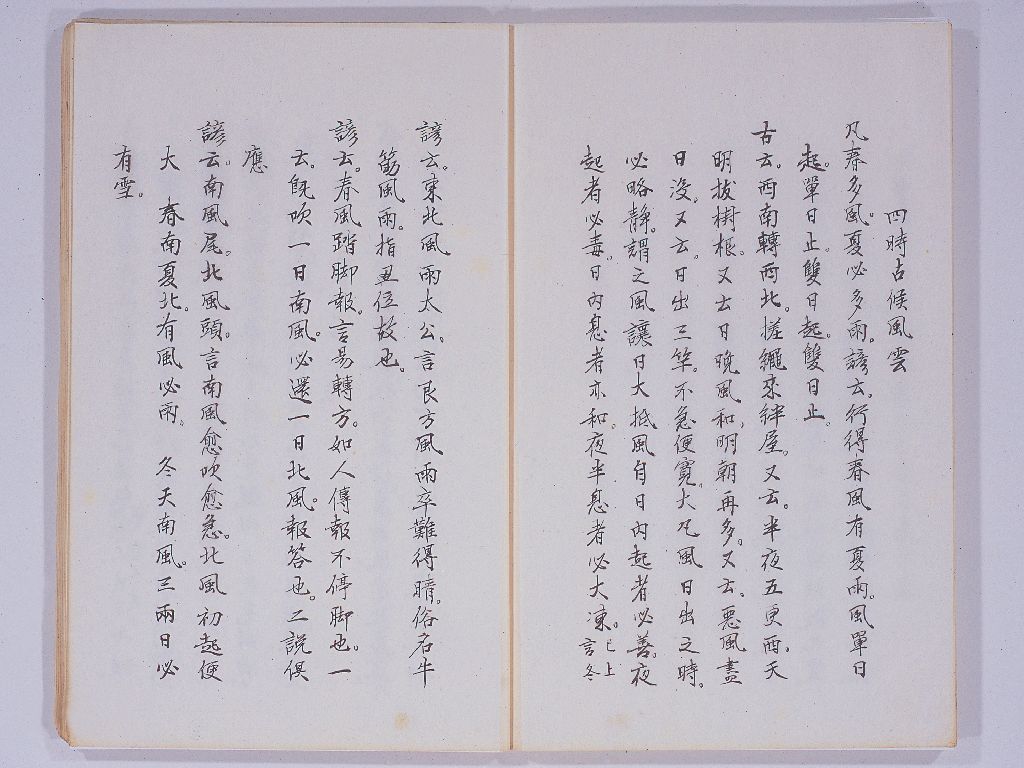 四時占候風雲
凡春多風。夏必多雨。諺云。行得春風有夏雨。風單日
起。單日止。雙日起。雙日止。
古云。西南轉西北。搓繩來絆屋。又云。半夜五更西。天
明拔樹根。又云日晚風和。明朝再多。又云。惡風盡
日沒。又云。日出三竿。不急便寬。大凡風日出之時。
必略静。謂之風讓日大抵風自日內起者必善。夜
起者必毒。日內息者亦和。夜半息者必大凍。已上言冬
諺云。東北風雨太公。言艮方風雨卒難得晴。俗名牛
筋風雨。指丑位故也。
諺云。春風踏脚報。言易轉方。如人傳報不停脚也。一
云。既吹一日南風。必還一日北風。報答也。二説俱
應
諺云。南風尾。北風頭。言南風愈吹愈急。北風初起便
大 春南夏北。有風必雨。 冬天南風。三兩日必
有雪。